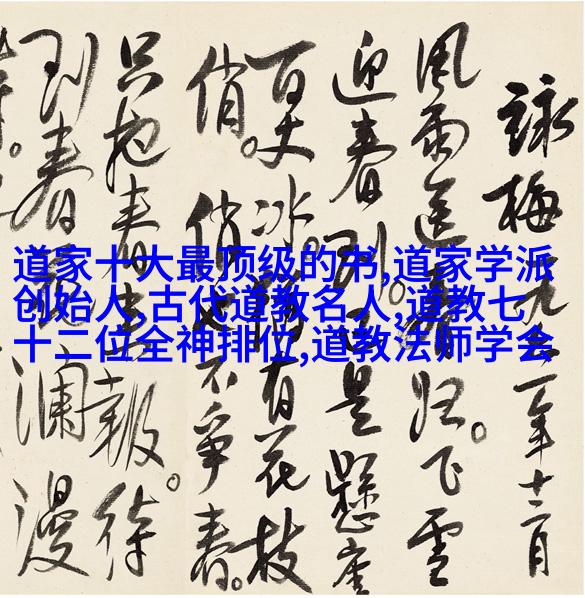 道家十大最顶级的书,道家学派
创始人,古代道教名人,道教七
十二位全神排位,道教法师学会
詠梅 一年十二月
風雨送春归。飞雪
迎春到。已是懸崖
百丈冰。有花枝
俏。俏也不爭春。
只抱春來報。待
到春瀾漫